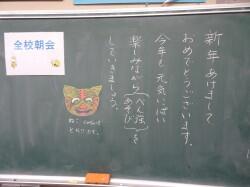 全校朝会
新年 あけまして
おめでとうございます。
今年も 元気いっぱい
楽しみながら べん強 を
あそび
していきましょう。
とらです。